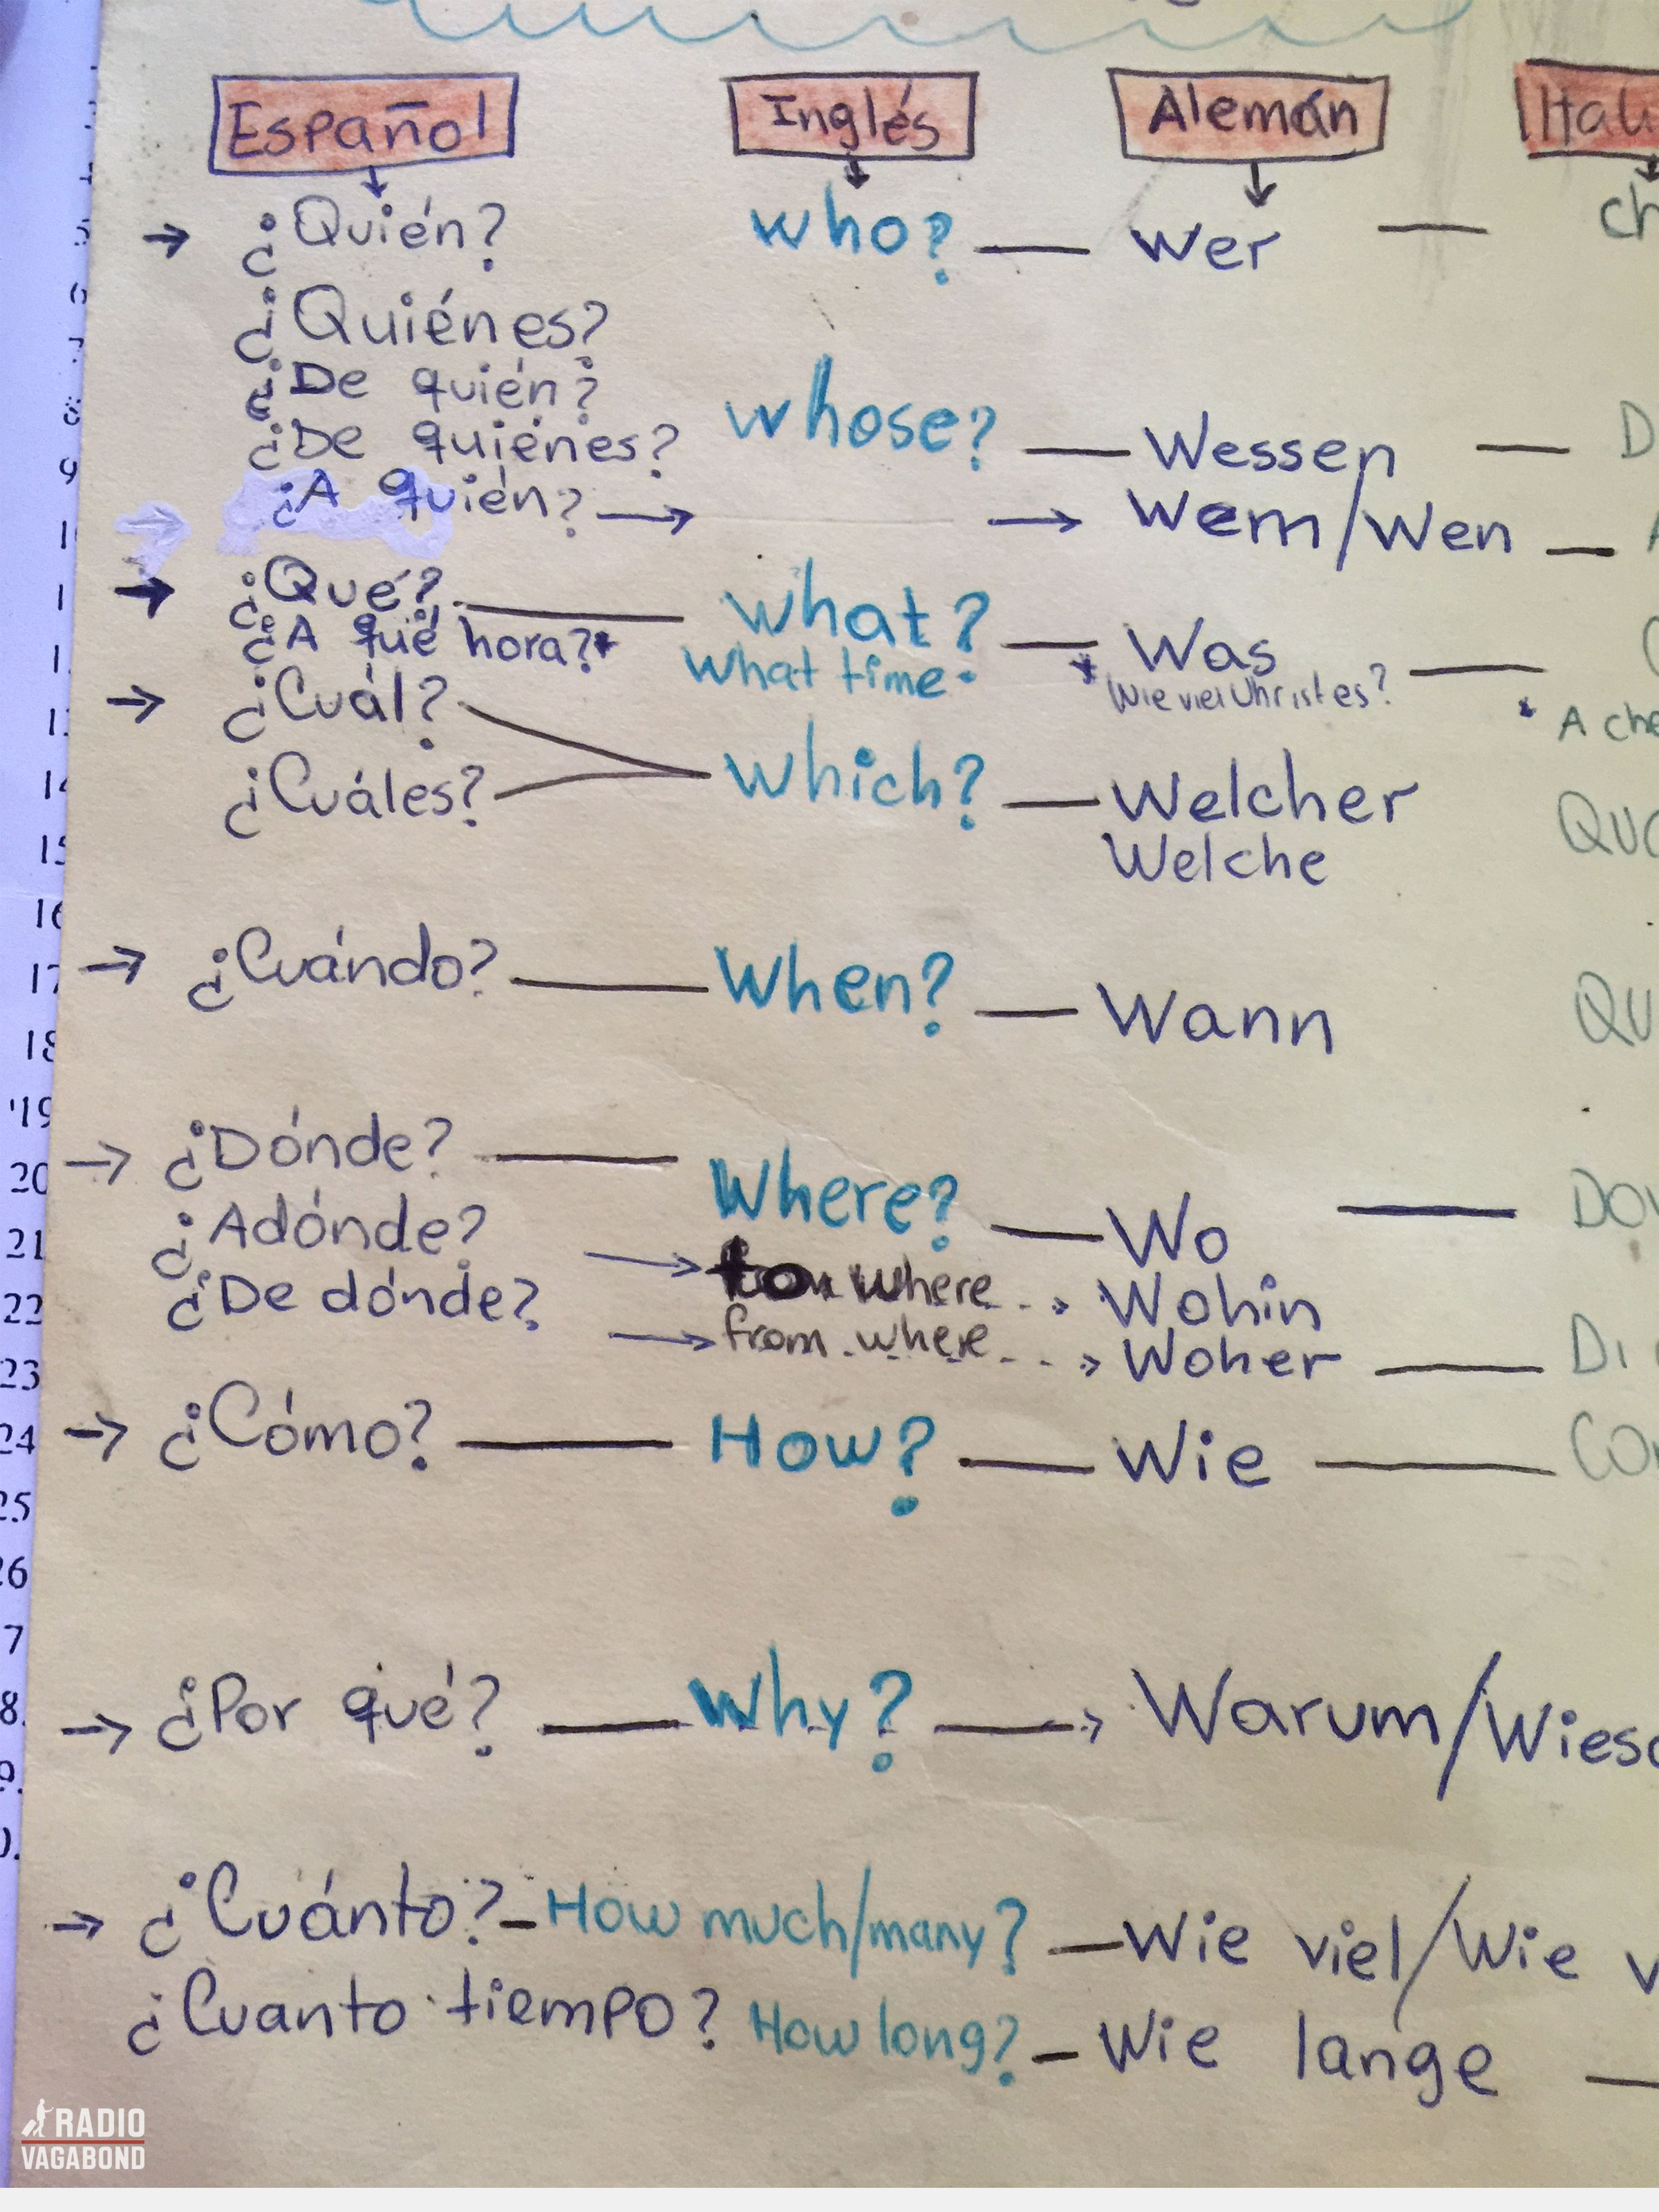 Español Inglés Alemán
¿Quién? who? Wer
¿Quiénes?
¿De quién?
¿De quiénes? whose? Wessen
¿A quién? Wem/Wen
¿Qué? what? Was
¿A qué hora?* What time * Wie viel Uhr ist es?
¿Cuál? * A che
¿Cuáles? Which? Welcher
Welche
¿Cuándo? When? Wann
¿Dónde? Where? Wo
¿Adónde? to where Wohin
¿De dónde? from where Woher
¿Cómo? How? Wie
¿Por qué? Why? Warum/
¿Cuánto? How much/many? Wie viel/Wie
¿Cuanto tiempo? How long? Wie lange
14
16
17
18
19
20
21
22
23
24
25
26
RADIO
VAGABOND